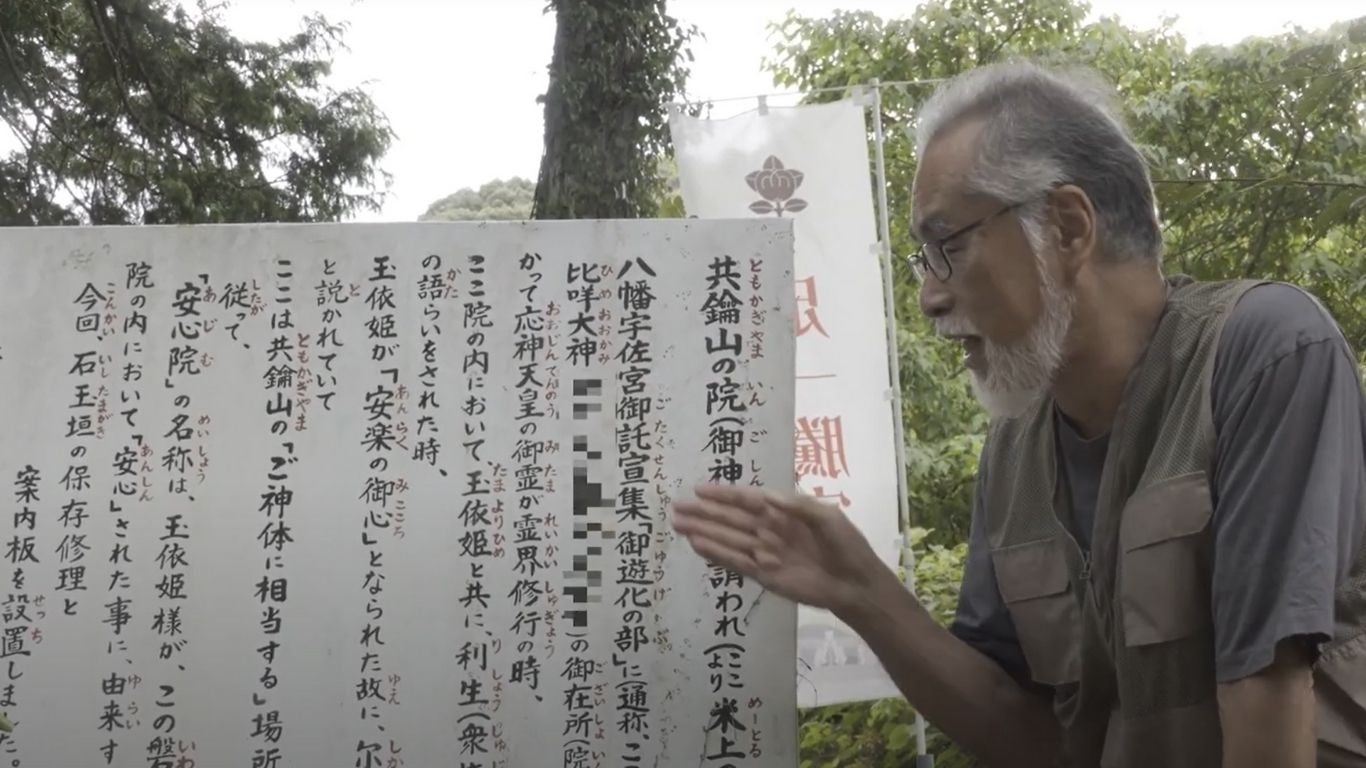 共鑰山の院(御神
請われ(ここより米上の
八幡宇佐宮御託宣集「御遊化の部」に(通称、こ
比咩大神
)の御在所(院
かつて応神天皇の御霊が霊界修行の時、
ここ院の内において、玉依姫と共に、利生(衆
の語らいをされた時、
玉依姫が「安楽の御心」となられた故に、尔
と説かれていて
ここは共鑰山の「ご神体に相当する」場所
従って、
「安心院」の名称は、玉依姫様が、この磐
院の内において「安心」された事に、由来す
今回、石玉垣の保存修理と
案内板を設置しました。